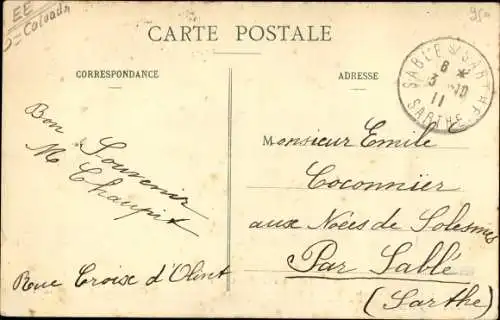 EE
Calvados
95
CARTE POSTALE
CORRESPONDANCE
ADRESSE
SABLÉ * SARTHE
8 *
3 -10
11
SARTHE
Bon Souvenir
M Chaupit
Rue Croix d'Olint
Monsieur Emile
Coconnier
aux Noées de Solesmes
Par Sablé
(Sarthe)